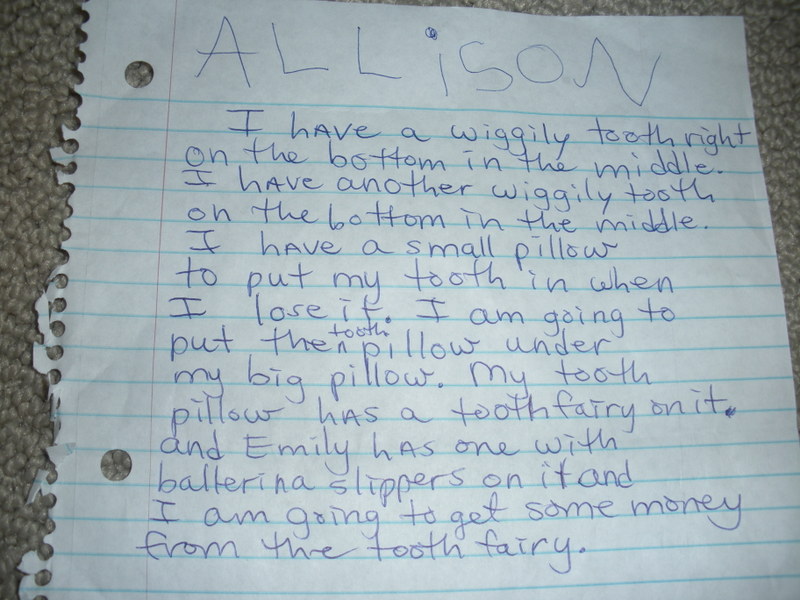 ALLiSON
I hAVE a wiggily tooth right
on the bottom in the middle.
I hAVE another wiggily tooth
on the bottom in the middle.
I hAVE a small pillow
to put my tooth in when
I lose it. I am going to
put the tooth pillow under
my big pillow. My tooth
pillow hAS a toothfairy on it.
and Emily hAS one with
ballerina slippers on it and
I am going to get some money
from the tooth fairy.